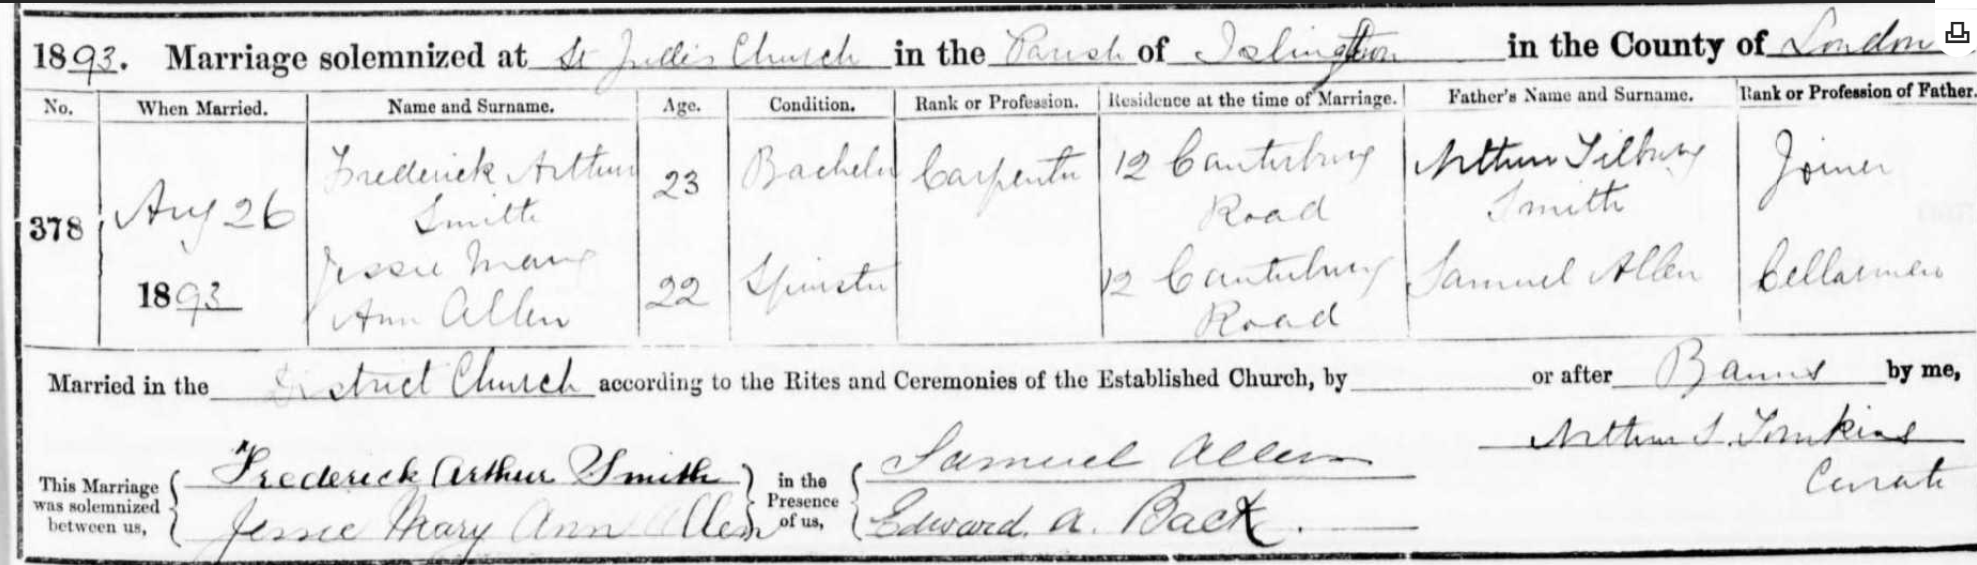 1893. Marriage solemnized at St Jude's Church in the Parish of Islington in the County of London
No. When Married. Name and Surname. Age. Condition. Rank or Profession. Residence at the time of Marriage. Father's Name and Surname. Rank or Profession of Father.
378 Aug 26 Frederick Arthur Smith 23 Bachelor Carpenter 12 Canterbury Road Arthur Tilbury Smith Joiner
1893 Jessie Mary Ann Allen 22 Spinster 12 Canterbury Road Samuel Allen Cellarman
Married in the District Church according to the Rites and Ceremonies of the Established Church, by or after Banns by me,
Arthur S. Tomkins
Curate
This Marriage was solemnized between us, Frederick Arthur Smith in the Presence of us, Samuel Allen
Jessie Mary Ann Allen Edward. A. Back.